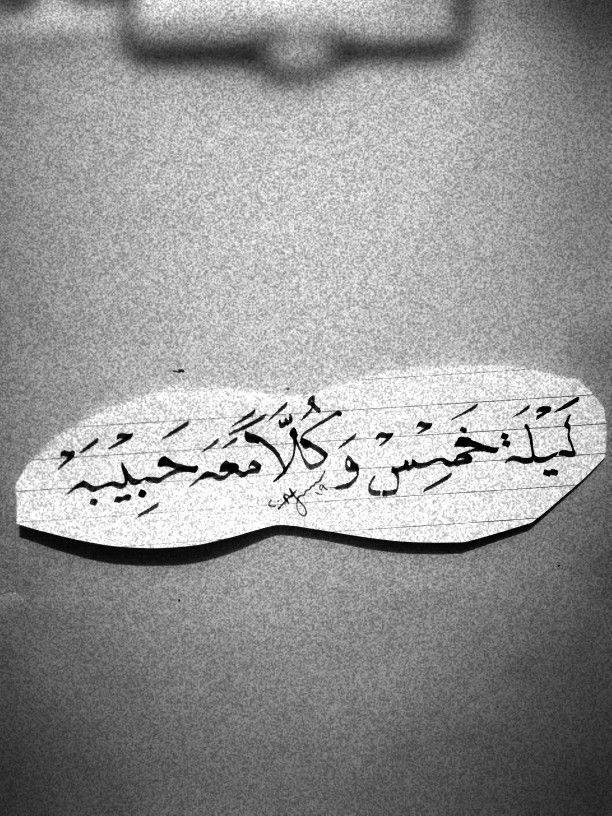 لَيْلَة خَمِيْسْ وَ كُلًّا مَعَه حَبِيْبَهْ